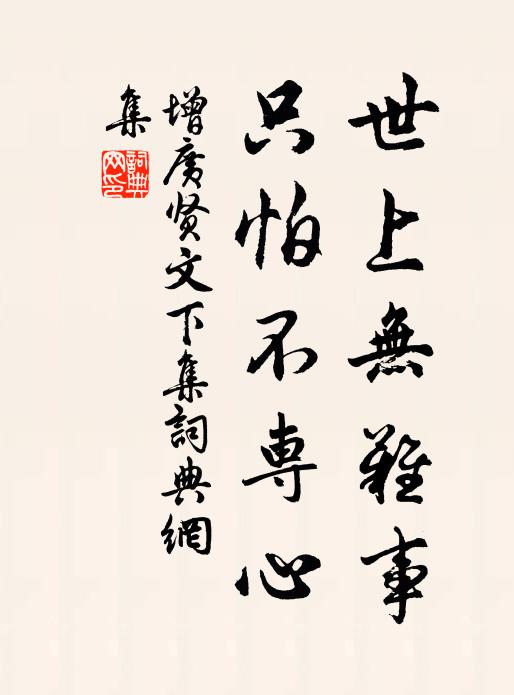 世上無難事
只怕不専心
增廣贤文下集詞典網
集
詞典
网印